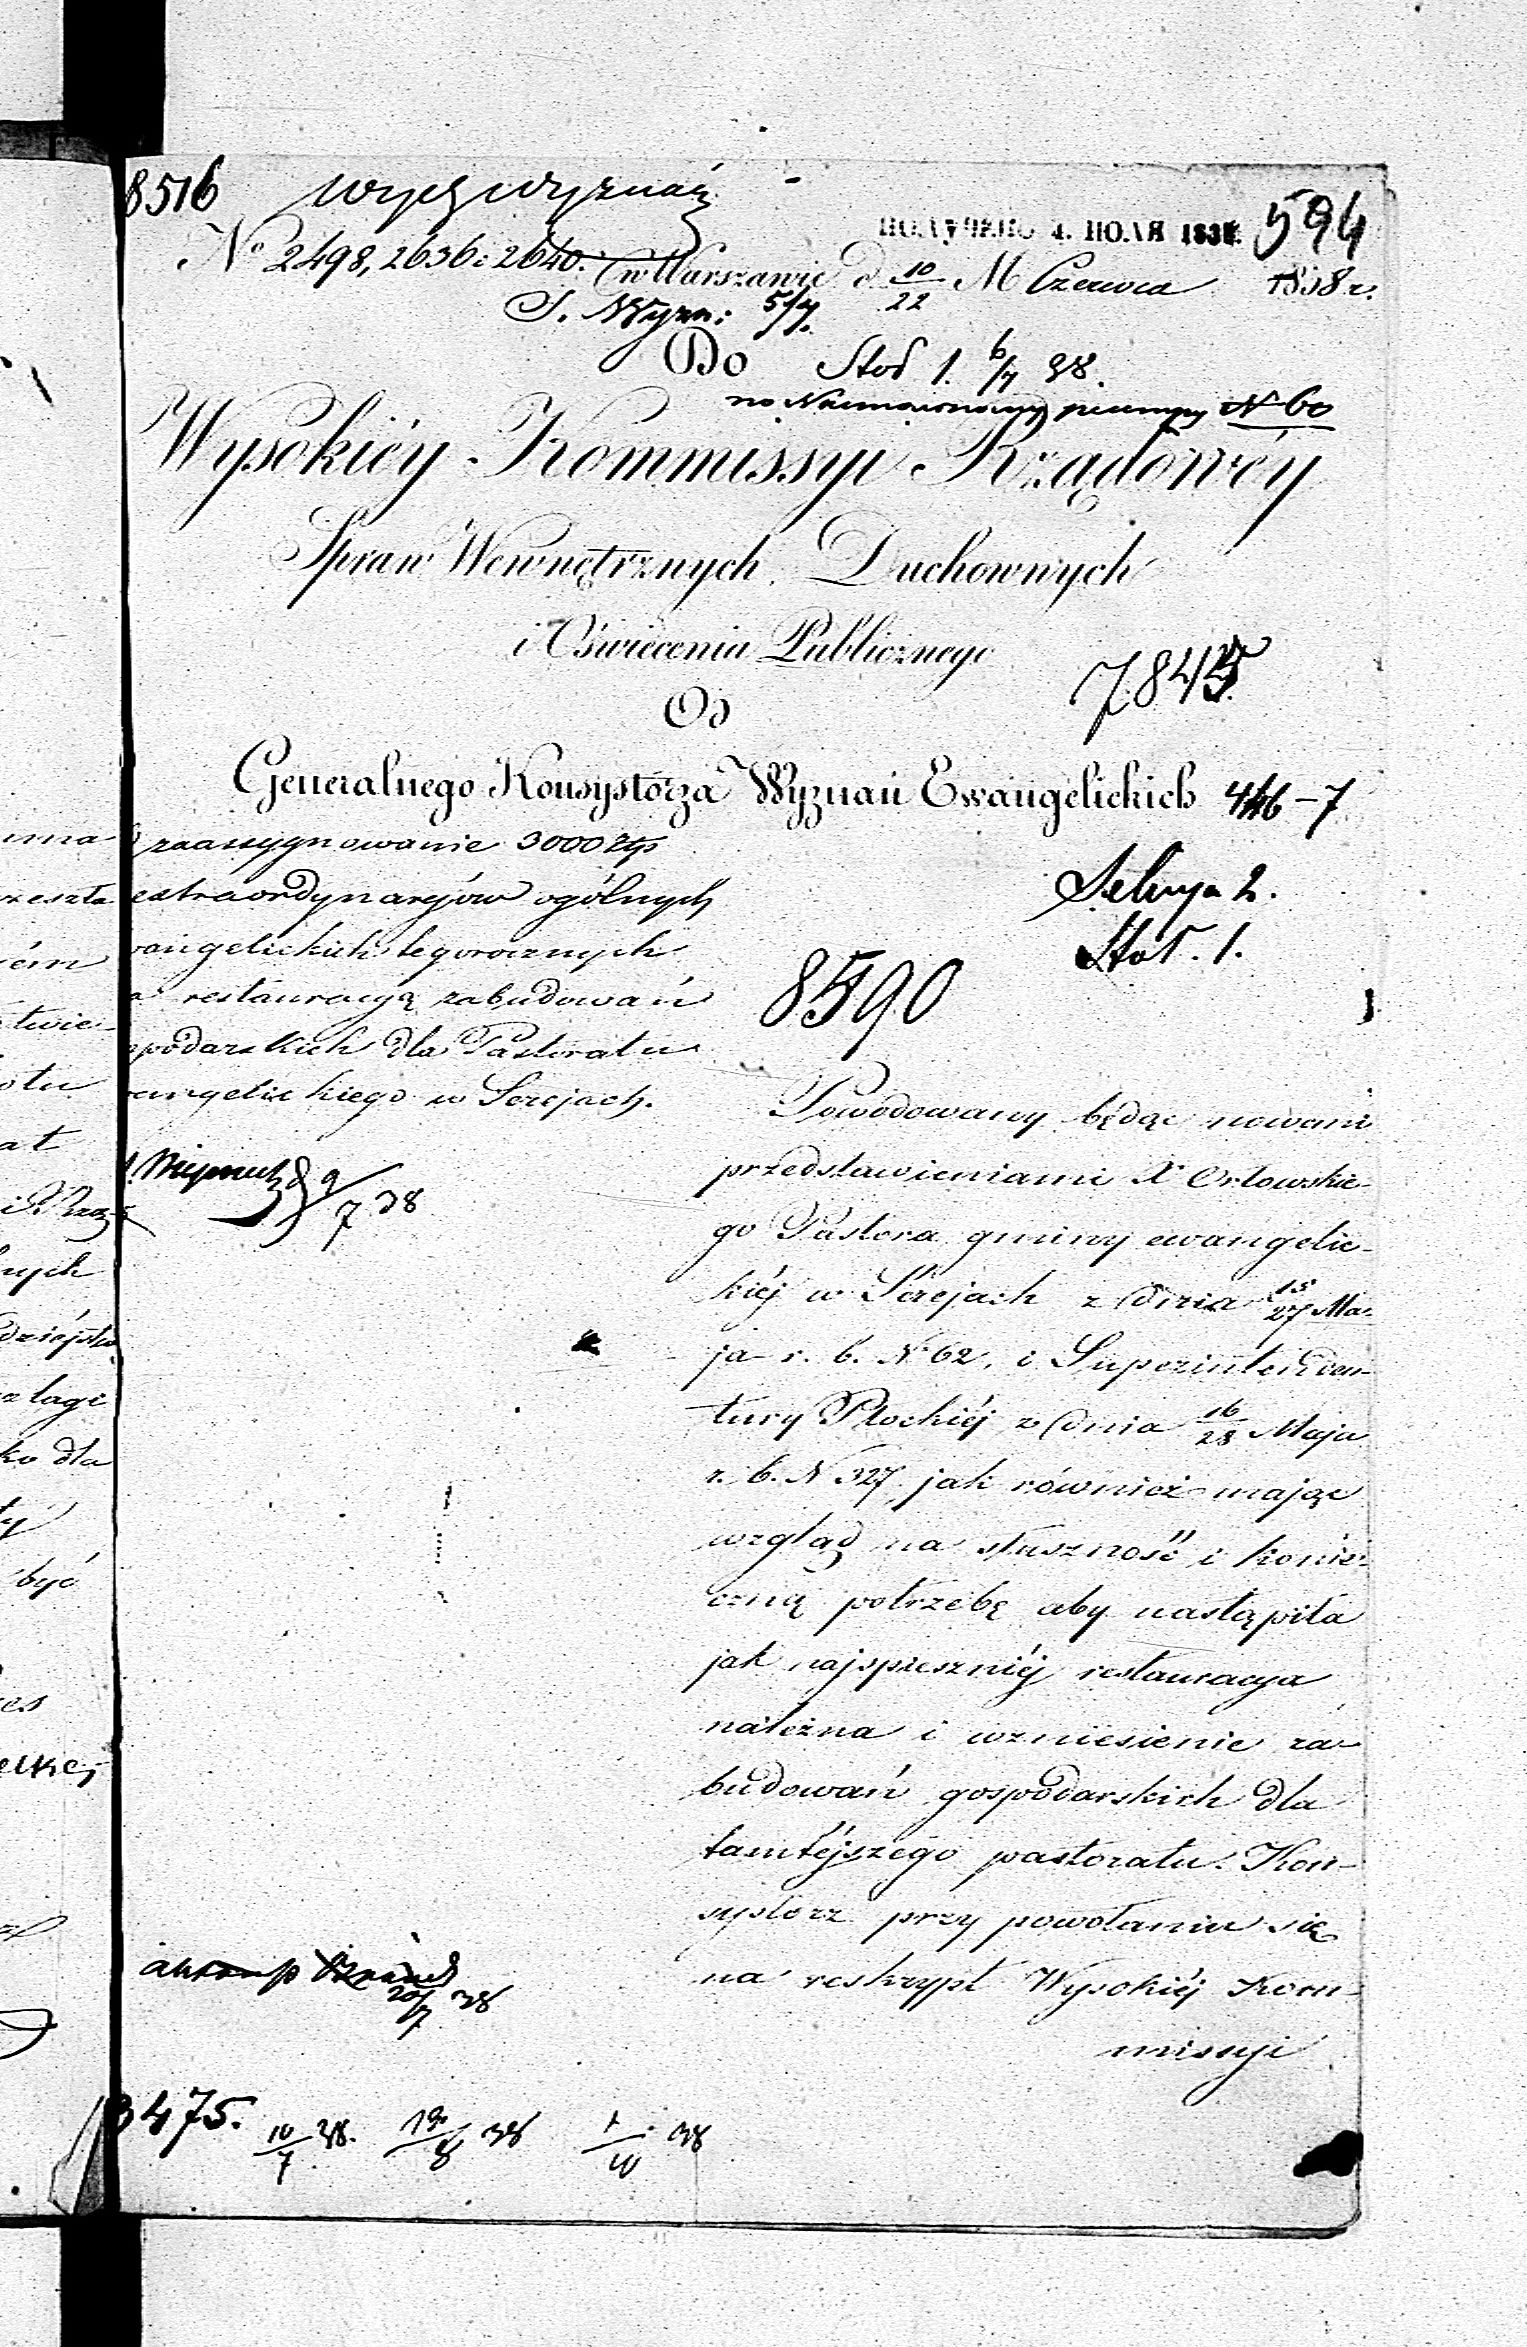 8516
594
ПОЛУЧЕНО 4. ІЮЛЯ 1838.
No 2498, 2636 i 2640. w Warszawie d 10/22 M Czerwca 1838 r.
S. Wyzn: 5/7.
Do Stoł 1. 6/7 38.
N 60
Wysokiéy Kommissyi Rządowéy
Spraw Wewnętrznych, Duchownych
i Oświecenia Publicznego
7845
Od
Generalnego Konsystorza Wyznań Ewangelickich 446-7
Sekcya 2.
Stoł. 1.
8590
zaassygnowanie 3000 Złp
extraordynaryów ogólnych
wangelickich tegorocznych
a restauracyą zabudowań
spodarskich dla Pastoratu
wangelickiego w Serejach.
9/7 38
Powodowany będąc nowemi
przedstawieniami X Orłowskie-
go Pastora gminy ewangelic-
kiéj w Serejach z dnia 15/27 Ma-
ja r. b. N 62, i Superintenden-
tury Płockiéj z dnia 16/28 Maja
r. b. N 327, jak również mając
wzgląd na słuszność i konie-
czną potrzebę aby nastąpiła
jak najspieszniéj restauracya
należna i wzniesienie za-
budowań gospodarskich dla
tamtéjszego pastoratu. Kon-
systorz przy powołaniu się
na reskrypt Wysokiéj Kom-
missyi
20/7 38
3475. 10/7 38. 19/8 38 1/10 38
ma
zeszła
iém
twie-
otu
at
nych
dziéjsk
ko dla
być